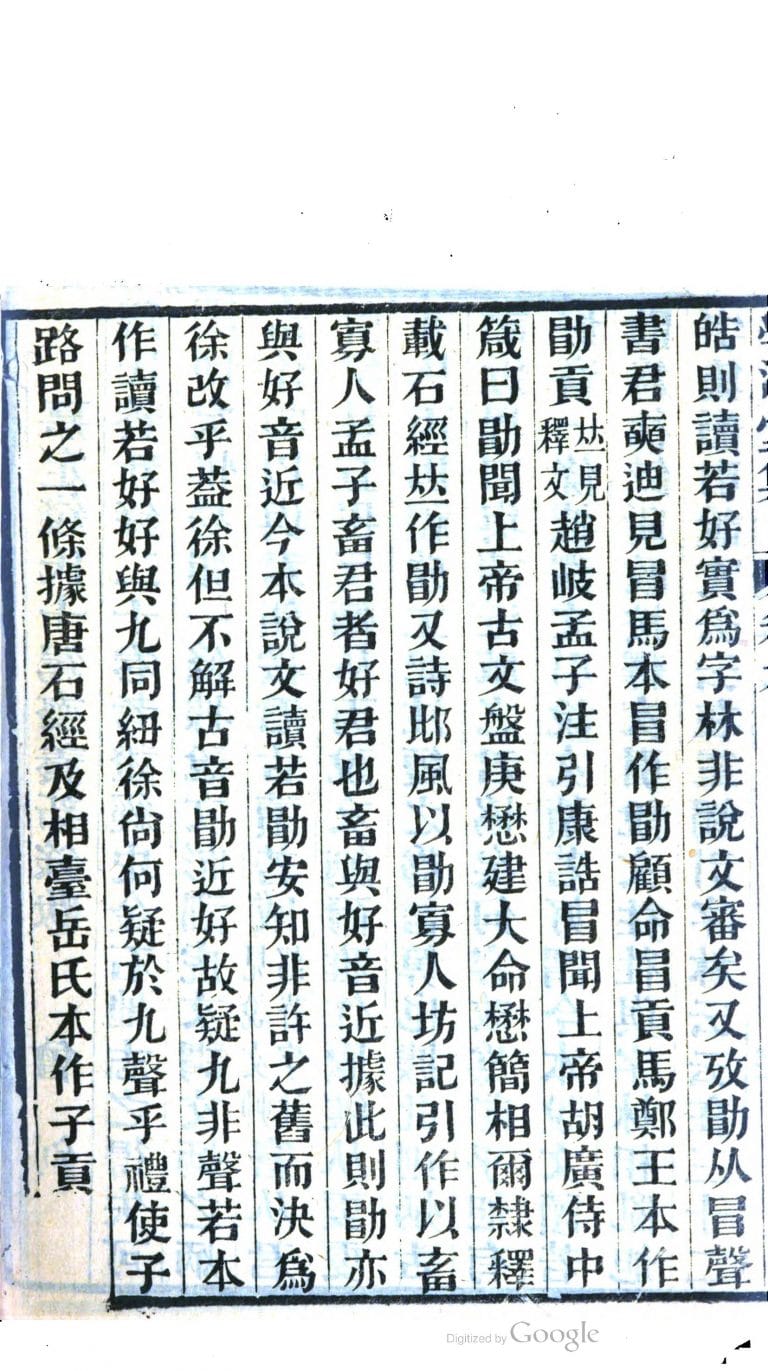 皓則讀若好實爲字林非說文審矣又攷勖从冒聲
書君奭迪見冒馬本冒作勖顧命冒貢馬鄭王本作
勖貢𠀤見釋文趙岐孟子注引康誥冒聞上帝胡廣侍中
箴曰勖聞上帝古文盤庚懋建大命懋簡相爾隸釋
載石經𠀤作勖又詩邶風以勖寡人坊記引作以畜
寡人孟子畜君者好君也畜與好音近據此則勖亦
與好音近今本說文讀若勖安知非許之舊而決爲
徐改乎葢徐但不解古音勖近好故疑九非聲若本
作讀若好好與九同紐徐尙何疑於九聲乎禮使子
路問之一條據唐石經及相臺岳氏本作子貢
Digitized by Google